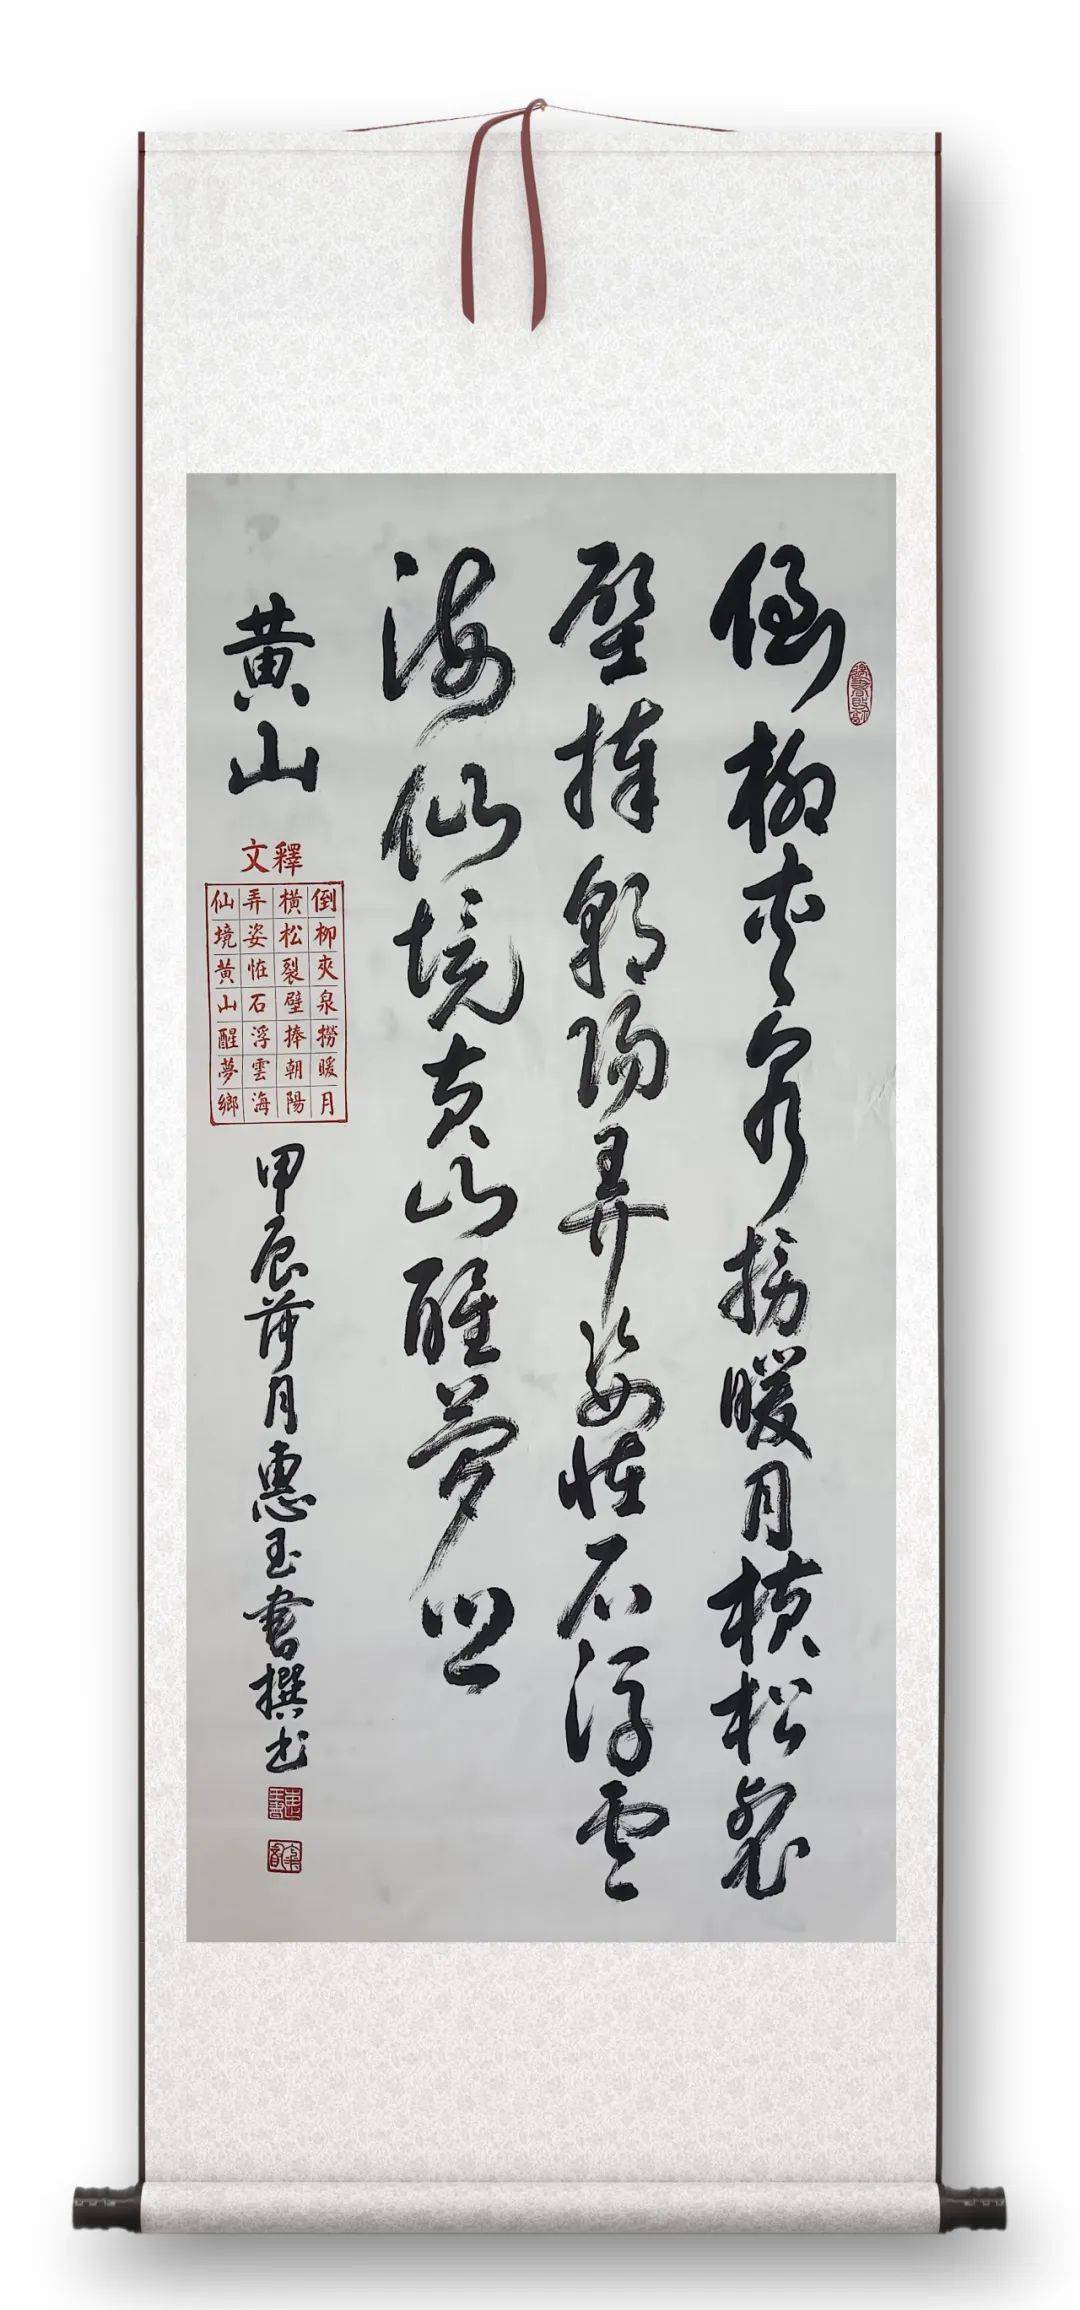 倒柳夾泉撈暖月橫松裂
壁捧朝陽弄姿恠石浮雲
海仙境黄山醒夢鄉
黄山
釋文
倒柳夾泉撈暖月
橫松裂壁捧朝陽
弄姿恠石浮雲海
仙境黄山醒夢鄉
甲辰荷月惠玉撰书